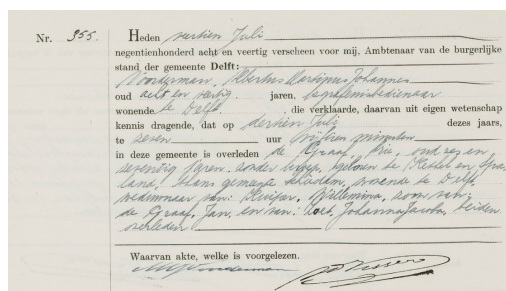 Nr. 355. Heden veertien Juli
negentienhonderd acht en veertig verscheen voor mij, Ambtenaar van de burgerlijke
stand der gemeente Delft:
Noorderman, Albertus Martinus Johannes
oud acht en veertig jaren, begrafenisbedienaar
wonende te Delft, die verklaarde, daarvan uit eigen wetenschap
kennis dragende, dat op dertien Juli dezes jaars,
te zeven uur vijftien minuten
in deze gemeente is overleden de Graaf, Arie, oud zes en
zeventig jaren, zonder beroep, geboren te Kethel en Spa-
land, thans gemeente Schiedam, wonende te Delft,
weduwnaar van: Kuijper, Willemina, zoon van:
de Graaf, Jan, en van: Johanna Jacoba, beiden
overleden
Waarvan akte, welke is voorgelezen.